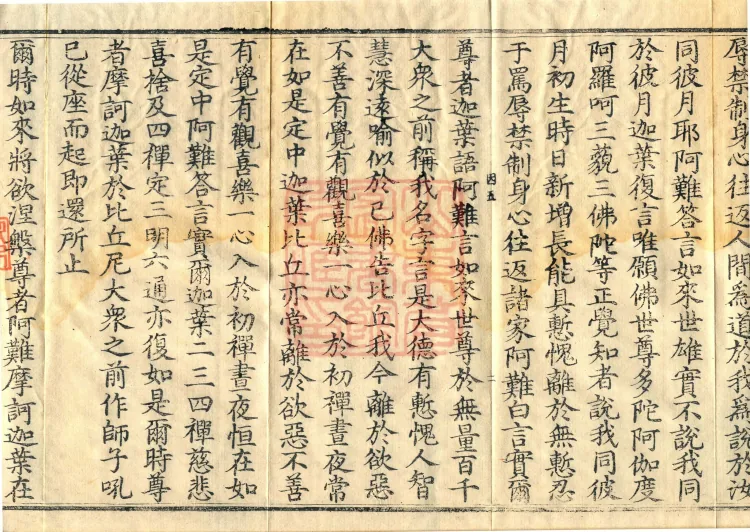 辱禁制身心往返人間爲道於我爲說於汝
同彼月耶阿難答言如來世雄實不說我同
於彼月迦葉復言唯願佛世尊多陀阿伽度
阿羅呵三藐三佛陀等正覺知者說我同彼
月初生時日新增長能具慙愧離於無慙忍
于罵辱禁制身心往返諸家阿難白言實爾
因五
二
尊者迦葉語阿難言如來世尊於無量百千
大衆之前稱我名字言是大德有慙愧人智
慧深遠喻似於己佛告比丘我今離於欲惡
不善有覺有觀喜樂一心入於初禪晝夜常
在如是定中迦葉比丘亦常離於欲惡不善
有覺有觀喜樂一心入於初禪晝夜恒在如
是定中阿難答言實爾迦葉二三四禪慈悲
喜捨及四禪定三明六通亦復如是爾時尊
者摩訶迦葉於比丘尼大衆之前作師子吼
已從座而起即還所止
爾時如來將欲涅槃尊者阿難摩訶迦葉在